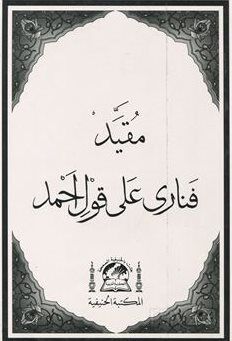 مُقَيَّدْ
فنارى على قول احمد
المكتبة الحنيفية